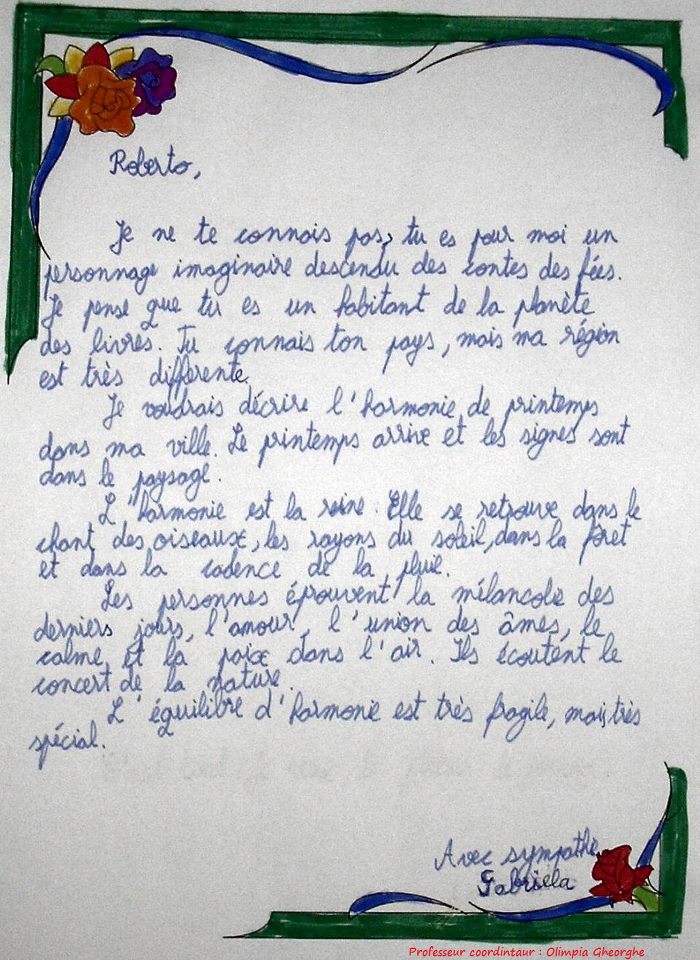 Roberto,
Je ne te connais pas, tu es pour moi un
personnage imaginaire descendu des contes des fées.
Je pense que tu es un habitant de la planète
des livres. Tu connais ton pays, mais ma région
est très differente.
Je voudrais décrire l'harmonie de printemps
dans ma ville. Le printemps arrive et les signes sont
dans le paysage.
L'harmonie est la reine. Elle se retrouve dans le
chant des oiseaux, les rayons du soleil, dans la fôret
et dans la cadence de la pluie.
Les personnes éprouvent la mélancolie des
derniers jours, l'amour, l'union des âmes, le
calme et la paix dans l'air. Ils écoutent le
concert de la nature.
L'équilibre d'harmonie est très fragile, mais très
spécial.
Avec sympathie
Gabriela
Professeur coordintaur : Olimpia Gheorghe